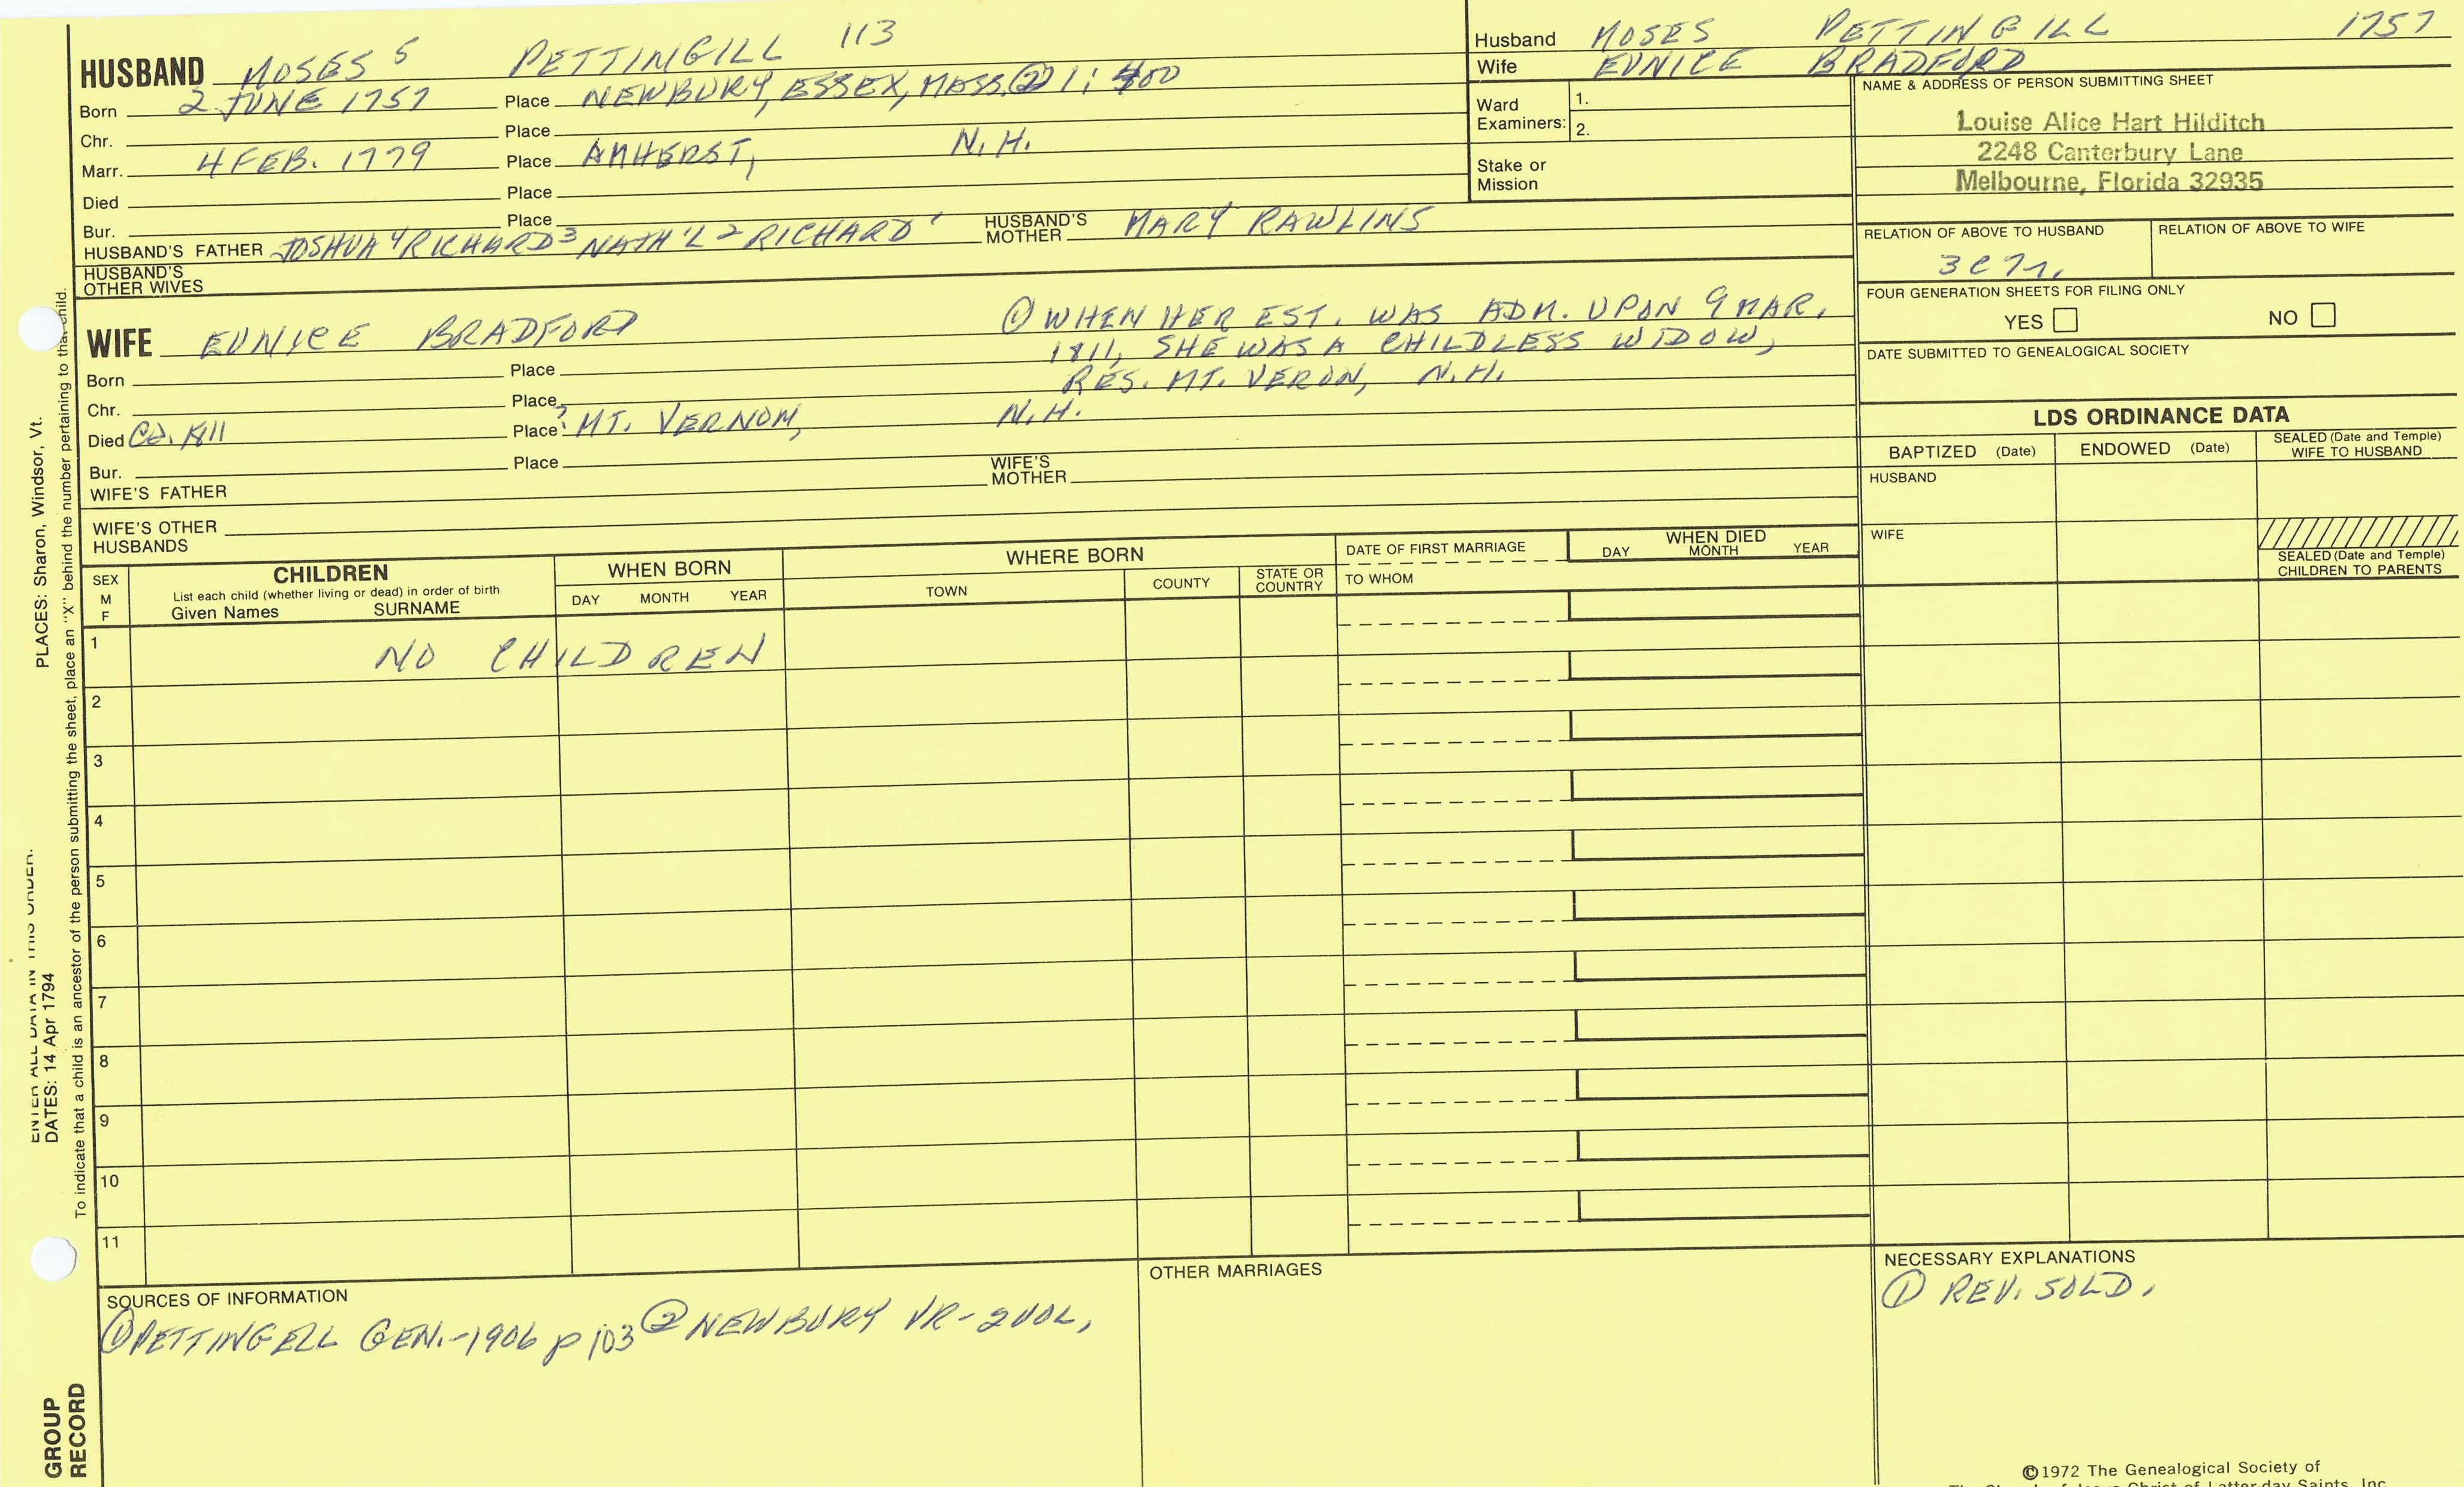 HUSBAND MOSES 5 PETTINGILL 113
Born 2 JUNE 1757 Place NEWBURY, ESSEX, MASS. ② 1: 400
Chr. Place
Marr. 4 FEB. 1779 Place AMHERST, N.H.
Died Place
Bur. Place
HUSBAND'S FATHER JOSHUA 4 RICHARD 3 NATH'L 2 RICHARD ' HUSBAND'S MOTHER MARY RAWLINS
HUSBAND'S OTHER WIVES
WIFE EUNICE BRADFORD
① WHEN HER EST. WAS ADM. UPON 9 MAR.
1811, SHE WAS A CHILDLESS WIDOW,
RES. MT. VERON, N.H.
Born Place
Chr. Place
Died Ca. 1811 Place ? MT. VERNOM, N.H.
Bur. Place
WIFE'S FATHER WIFE'S MOTHER
WIFE'S OTHER HUSBANDS
Husband MOSES PETTINGILL 1757
Wife EUNICE BRADFORD
Ward Examiners: 1.
2.
Stake or Mission
NAME & ADDRESS OF PERSON SUBMITTING SHEET
Louise Alice Hart Hilditch
2248 Canterbury Lane
Melbourne, Florida 32935
RELATION OF ABOVE TO HUSBAND RELATION OF ABOVE TO WIFE
FOUR GENERATION SHEETS FOR FILING ONLY
YES NO
DATE SUBMITTED TO GENEALOGICAL SOCIETY
LDS ORDINANCE DATA
BAPTIZED (Date) ENDOWED (Date) SEALED (Date and Temple) WIFE TO HUSBAND
HUSBAND
WIFE
SEALED (Date and Temple) CHILDREN TO PARENTS
SEX M F
CHILDREN
List each child (whether living or dead) in order of birth
Given Names SURNAME
WHEN BORN
DAY MONTH YEAR
WHERE BORN
TOWN COUNTY STATE OR COUNTRY
DATE OF FIRST MARRIAGE
TO WHOM
WHEN DIED
DAY MONTH YEAR
1 NO CHILDREN
2
3
4
5
6
7
8
9
10
11
SOURCES OF INFORMATION
① PETTINGELL GEN.-1906 p 103 ② NEWBURY VR-2VOL,
OTHER MARRIAGES
NECESSARY EXPLANATIONS
① REV. SOLD.
©1972 The Genealogical Society of
The Church of Jesus Christ of Latter-day Saints, Inc.
ENTER ALL DATA IN THIS ORDER.
DATES: 14 Apr 1794
PLACES: Sharon, Windsor, Vt.
To indicate that a child is an ancestor of the person submitting the sheet, place an "X" behind the number pertaining to that child.
GROUP
RECORD